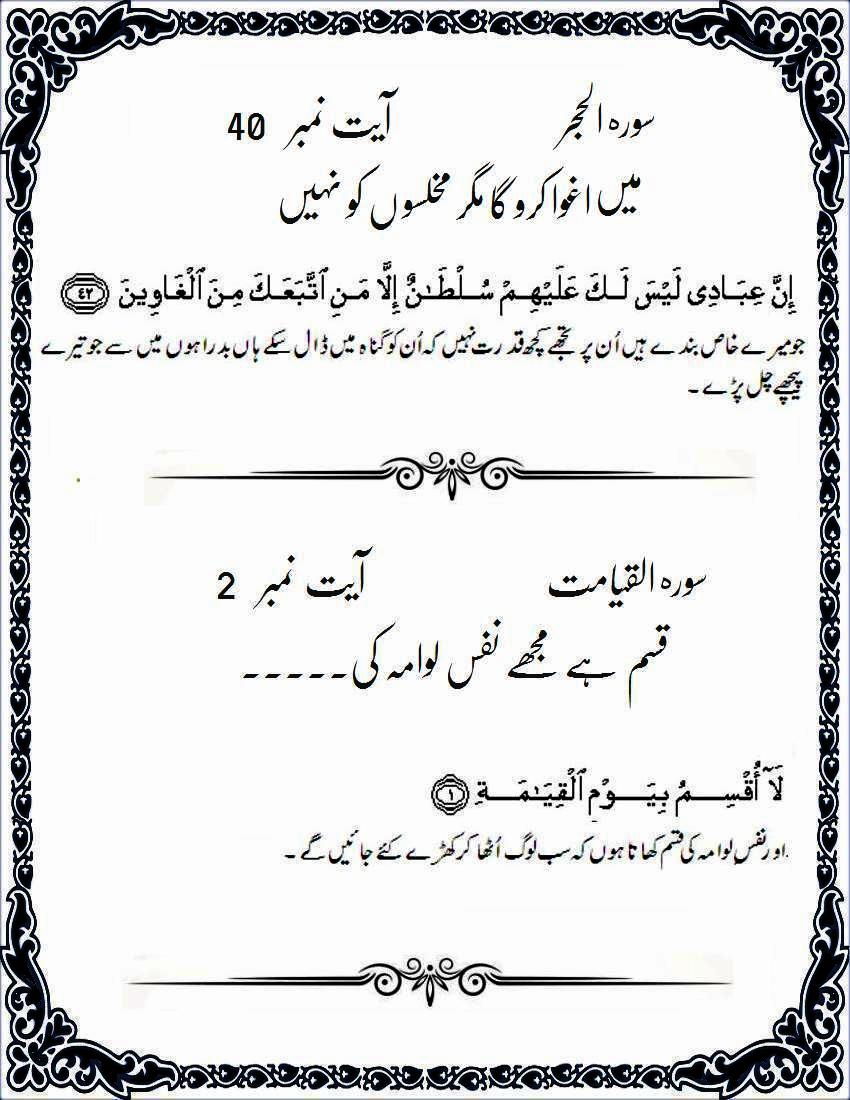 سورہ الحجر آیت نمبر 40
میں اغوا کرو گا مگر مخلسوں کو نہیں
إِنَّ عِبَادِى لَيْسَ لَكَ عَلَيْهِمْ سُلْطَـٰنٌ إِلَّا مَنِ ٱتَّبَعَكَ مِنَ ٱلْغَاوِينَ ٤٢
جو میرے خاص بندے ہیں اُن پر تجھے کچھ قدرت نہیں کہ اُن کو گناہ میں ڈال سکے ہاں بد راہوں میں سے جو تیرے
پیچھے چل پڑے ۔
سورہ القیامت آیت نمبر 2
قسم ہے مجھے نفس لوامہ کی ۔۔۔۔۔
لَآ أُقْسِمُ بِيَوْمِ ٱلْقِيَـٰمَةِ ١
اور نفسِ لوامہ کی قسم کھاتا ہوں کہ سب لوگ اُٹھا کر کھڑے کئے جائیں گے ۔